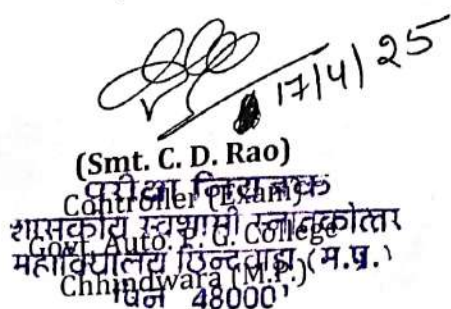 17/4/25
(Smt. C. D. Rao)
परीक्षा नियंत्रक
Controller (Exam)
शासकीय स्वशासी स्नातकोत्तर
Govt. Auto. P. G. College
महाविद्यालय छिन्दवाड़ा (म.प्र.)
Chhindwara (M.P.)
पिन 48000